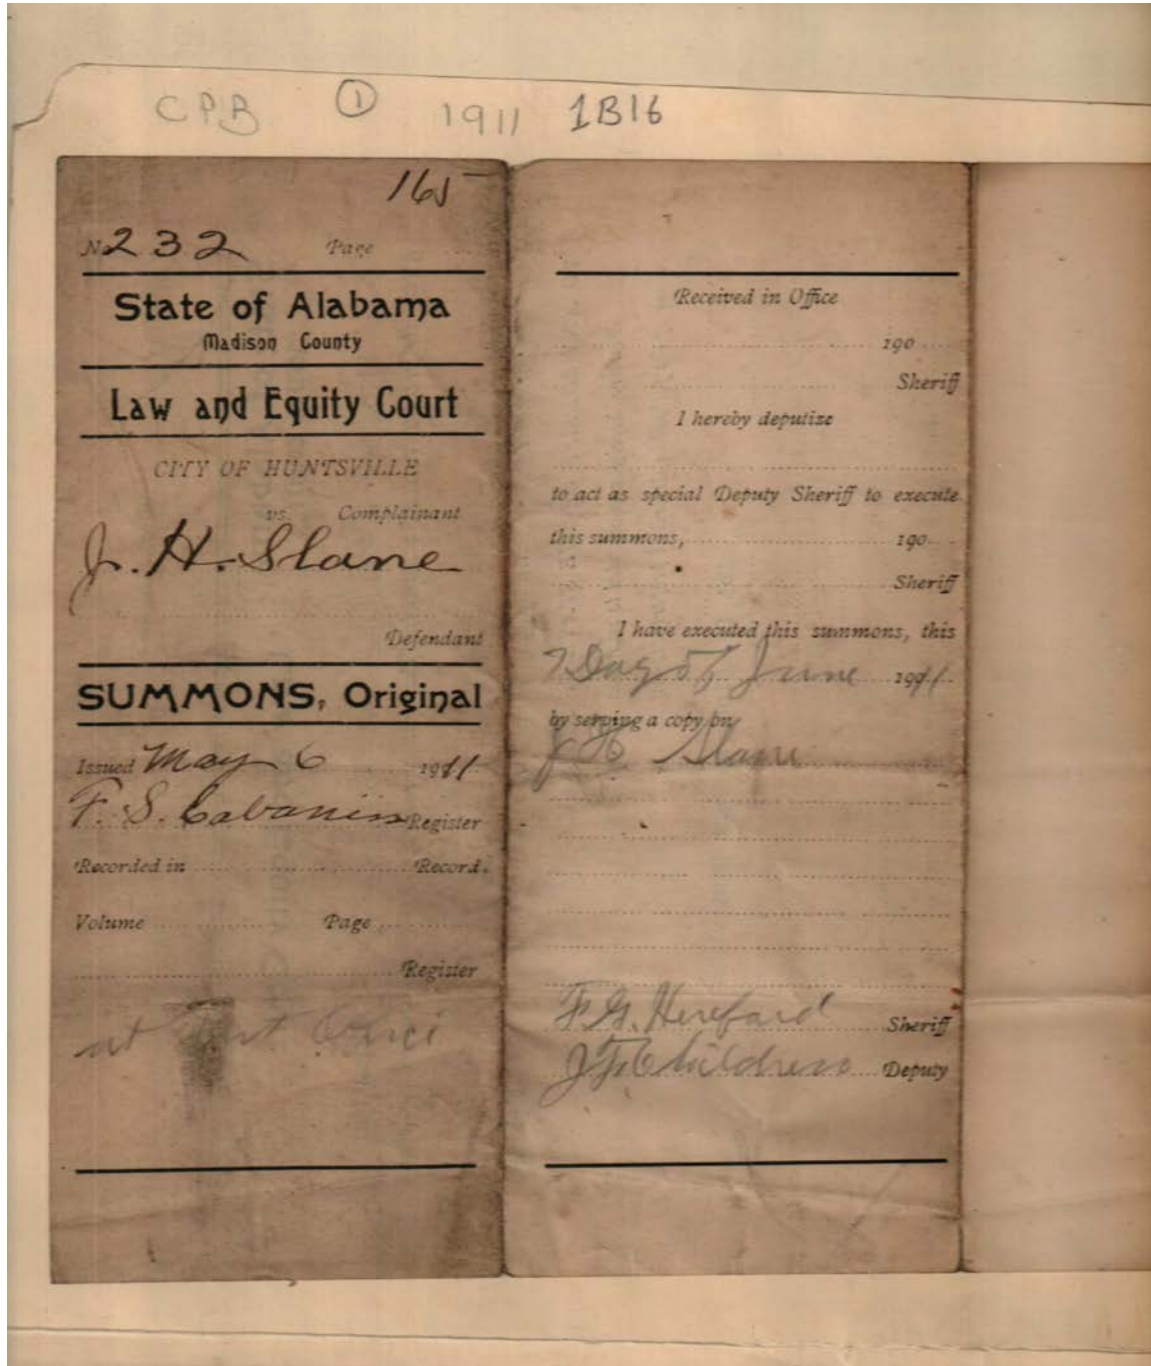 CPB ① 1911 1B16
165
No 232 Page
State of Alabama
Madison County
Law and Equity Court
CITY OF HUNTSVILLE
vs. Complainant
J. H. Slane
Defendant
SUMMONS, Original
Issued May 6 1911
F. S. Cabaniss Register
Recorded in Record.
Volume Page
Register
at
Received in Office
190
Sheriff
I hereby deputize
to act as special Deputy Sheriff to execute
this summons, 190
Sheriff
I have executed this summons, this
7 Day of June 1911
by serving a copy on
J H Slane
F. G. Hereford Sheriff
J F Childress Deputy